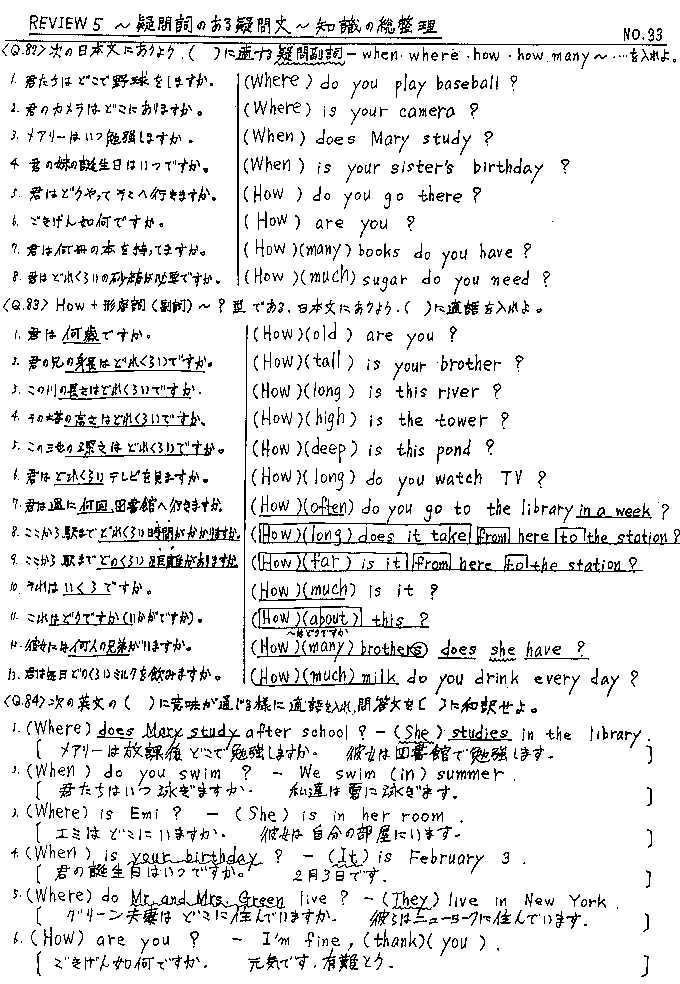 REVIEW 5 ～疑問詞のある疑問文～知識の総整理 NO.33
<Q.82>次の日本文にあうよう、( )に適する疑問副詞－when・where・how・how many～…を入れよ。
1. 君たちはどこで野球をしますか。 (Where) do you play baseball ?
2. 君のカメラはどこにありますか。 (Where) is your camera ?
3. メアリーはいつ勉強しますか。 (When) does Mary study ?
4. 君の妹の誕生日はいつですか。 (When) is your sister's birthday ?
5. 君はどうやってそこへ行きますか。 (How) do you go there ?
6. ごきげん如何ですか。 (How) are you ?
7. 君は何冊の本を持ってますか。 (How)(many) books do you have ?
8. 君はどれくらいの砂糖が必要ですか。 (How)(much) sugar do you need ?
<Q.83> How + 形容詞(副詞)～? 型である、日本文にあうよう、( )に適語を入れよ。
1. 君は何歳ですか。 (How)(old) are you ?
2. 君の兄の身長はどれくらいですか。 (How)(tall) is your brother ?
3. この川の長さはどれくらいですか。 (How)(long) is this river ?
4. その塔の高さはどれくらいですか。 (How)(high) is the tower ?
5. この池の深さはどれくらいですか。 (How)(deep) is this pond ?
6. 君はどれくらいテレビを見ますか。 (How)(long) do you watch TV ?
7. 君は週に何回、図書館へ行きますか。 (How)(often) do you go to the library in a week ?
8. ここから駅までどれくらい時間がかかりますか。 (How)(long) does it take from here to the station ?
9. ここから駅までどのくらい距離がありますか。 (How)(far) is it from here to the station ?
10. それはいくらですか。 (How)(much) is it ?
11. これはどうですか(いかがですか)。 (How)(about) this ?
～はどうですか
12. 彼女には何人の兄弟がいますか。 (How)(many) brothers does she have ?
13. 君は毎日どのくらいミルクを飲みますか。 (How)(much) milk do you drink every day ?
<Q.84>次の英文の( )に意味が通じる様に適語を入れ、問答文を[ ]に和訳せよ。
1. (Where) does Mary study after school ? － (She) studies in the library.
[ メアリーは放課後どこで勉強しますか。 彼女は図書館で勉強します。 ]
2. (When) do you swim ? － We swim (in) summer.
[ 君たちはいつ泳ぎますか。 私達は夏に泳ぎます。 ]
3. (Where) is Emi ? － (She) is in her room.
[ エミはどこにいますか。 彼女は自分の部屋にいます。 ]
4. (When) is your birthday ? － (It) is February 3.
[ 君の誕生日はいつですか。 2月3日です。 ]
5. (Where) do Mr. and Mrs. Green live ? － (They) live in New York.
[ グリーン夫妻はどこに住んでいますか。 彼らはニューヨークに住んでいます。 ]
6. (How) are you ? － I'm fine, (thank)(you).
[ ごきげん如何ですか。 元気です。有難とう。 ]